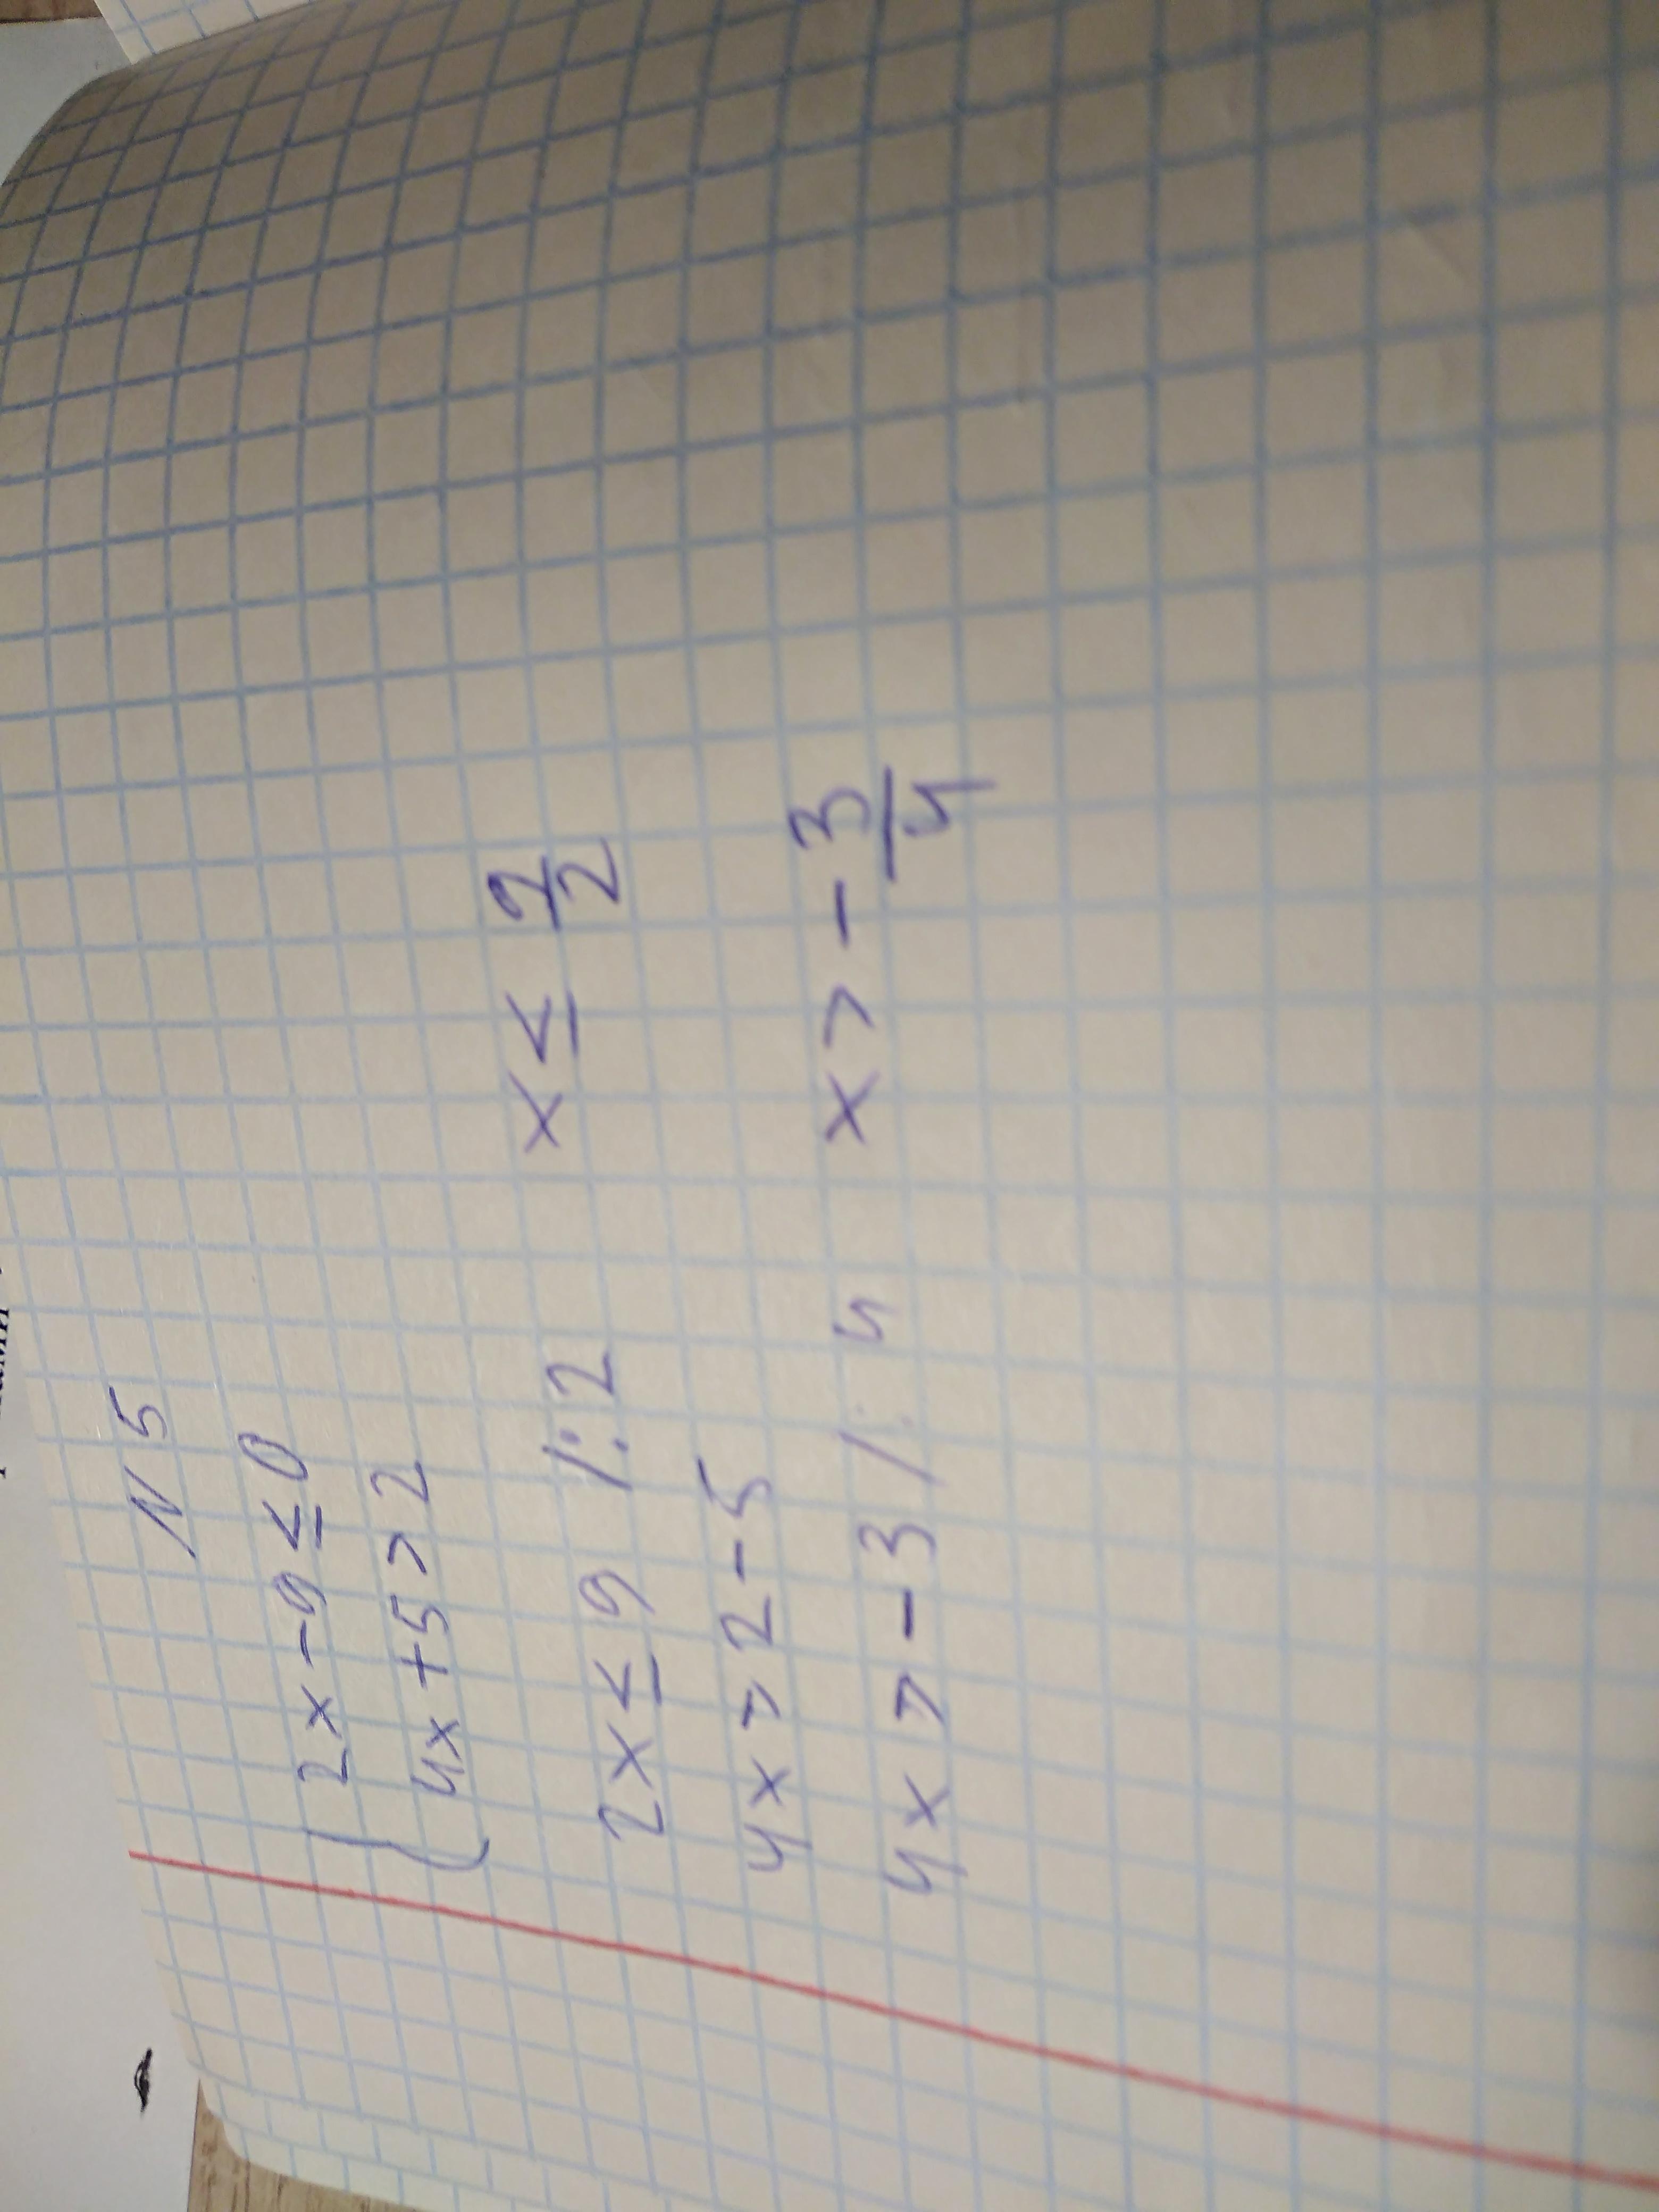 N 5
2x - 9 ≤ 0
4x + 5 > 2
2x ≤ 9 /:2 x ≤ 9/2
4x > 2 - 5
4x > -3 /: 4 x > - 3/4